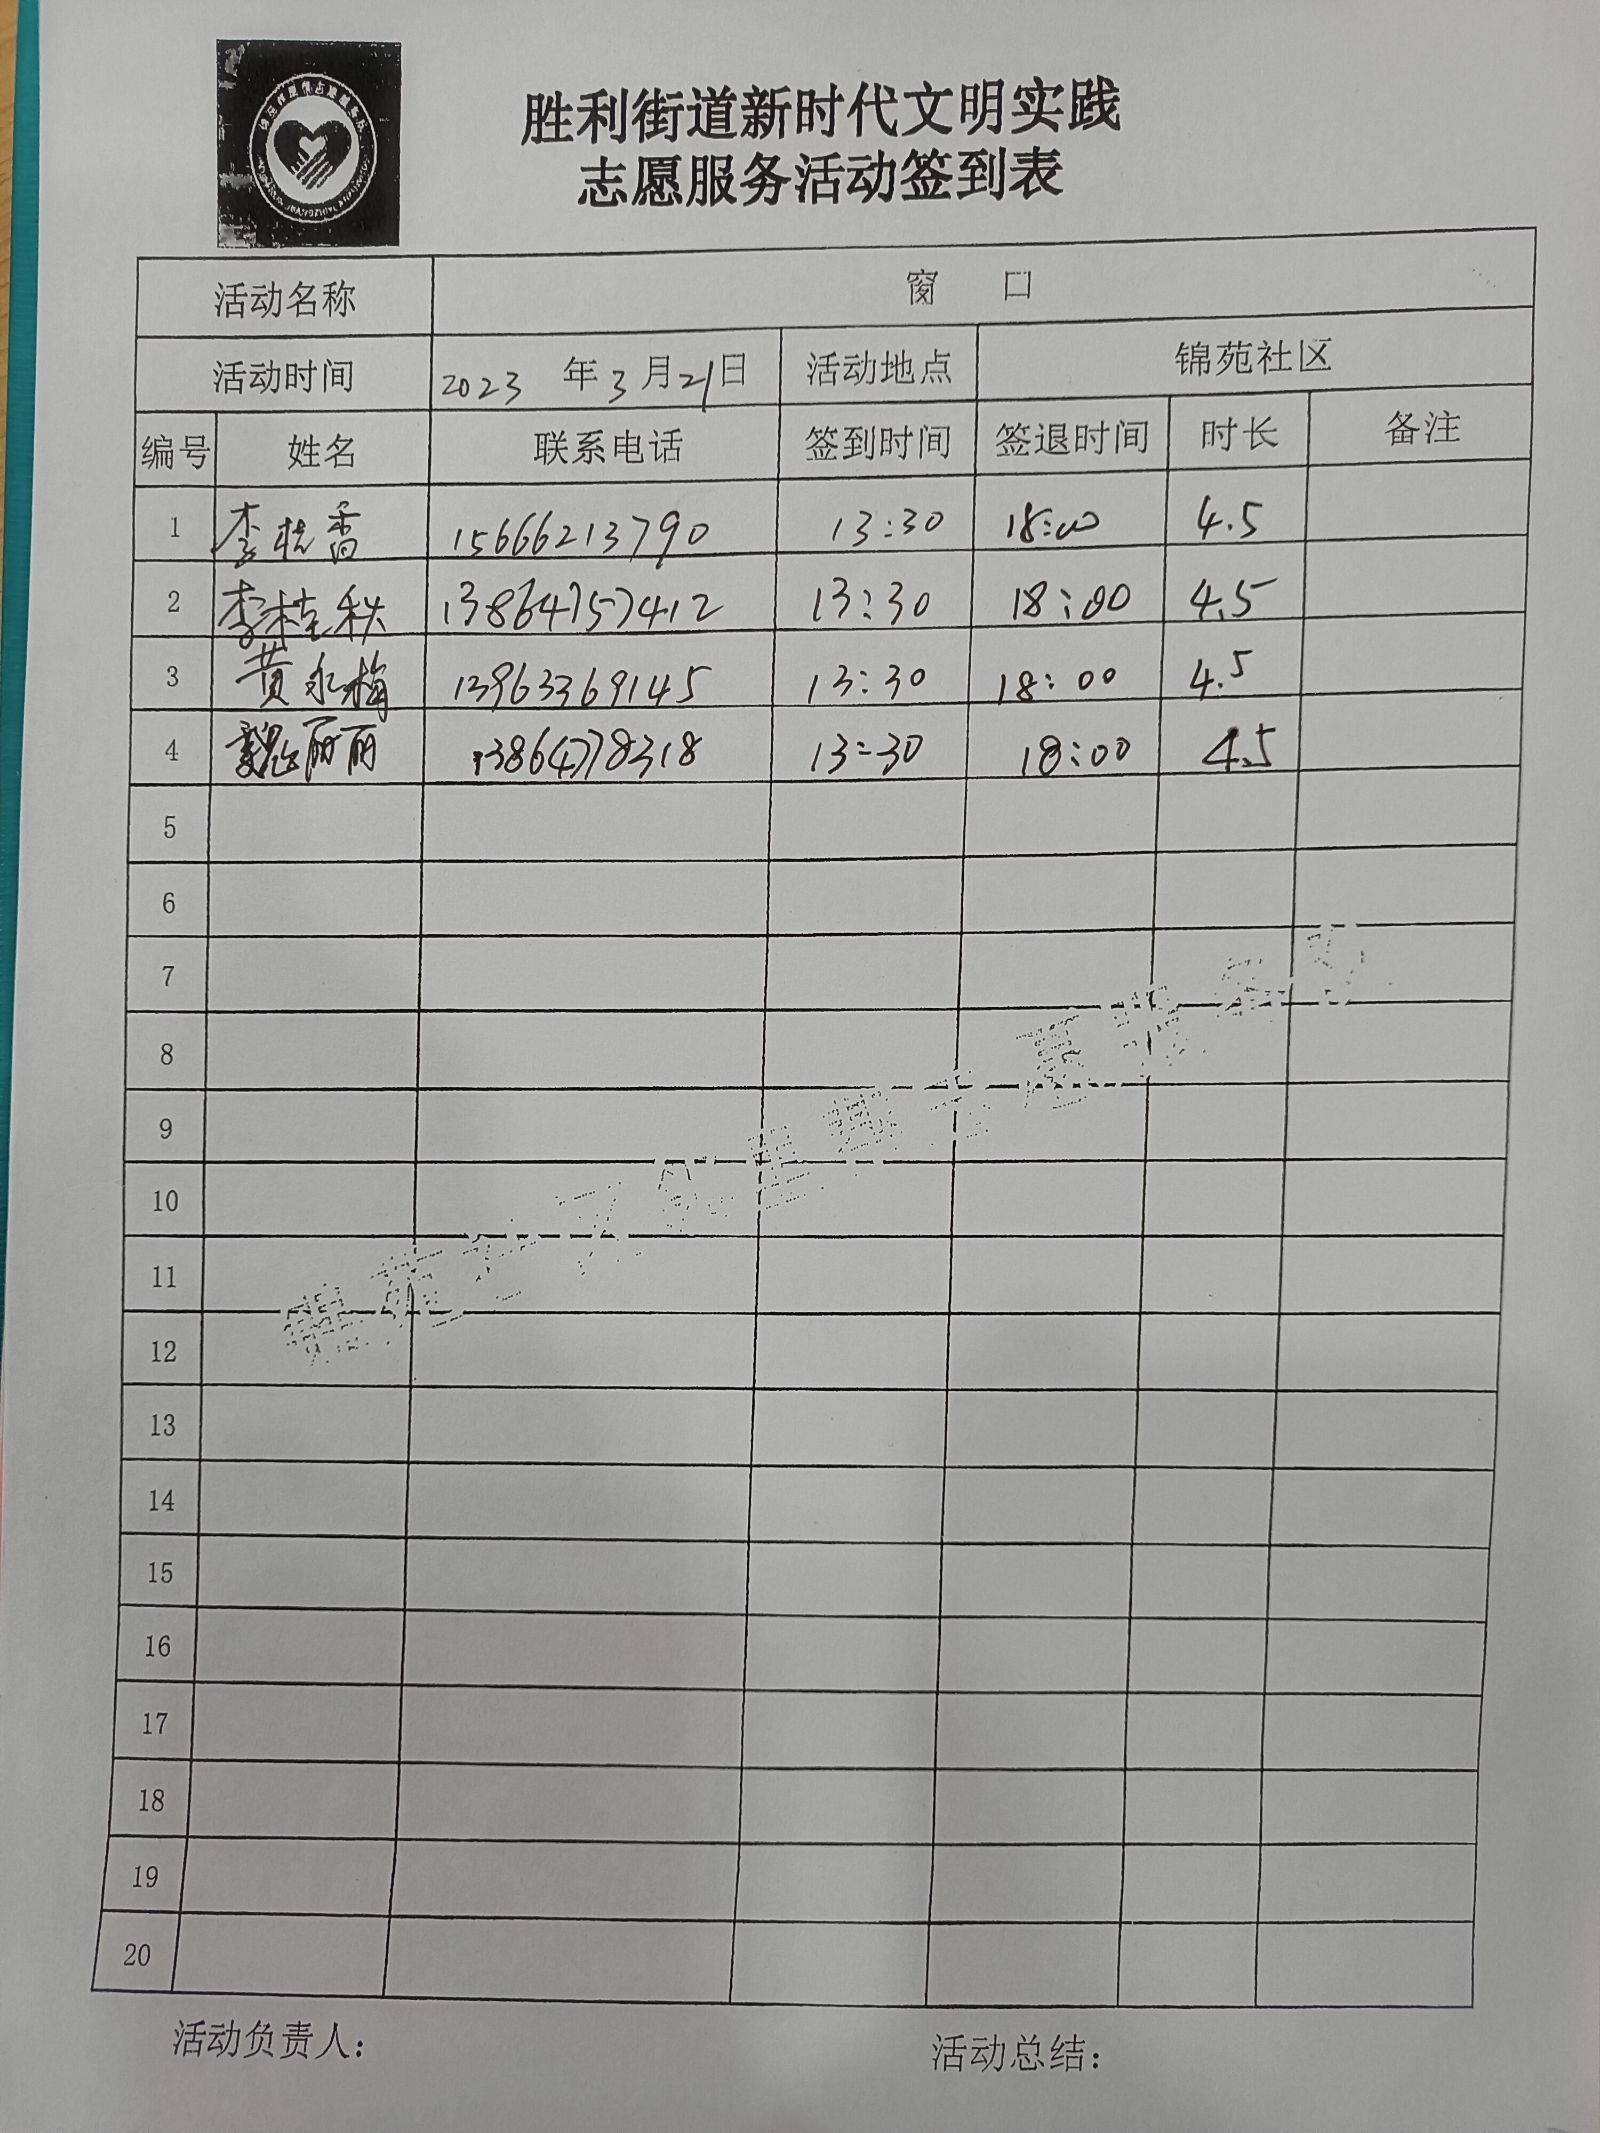 胜利街道新时代文明实践
志愿服务活动签到表
活动名称 窗 口
活动时间 2023 年 3 月 21 日 活动地点 锦苑社区
编号 姓名 联系电话 签到时间 签退时间 时长 备注
1 李桂香 15666213790 13:30 18:00 4.5
2 李桂秋 13864757412 13:30 18:00 4.5
3 黄永梅 13963369145 13:30 18:00 4.5
4 魏丽丽 13864778318 13:30 18:00 4.5
5
6
7
8
9
10
11
12
13
14
15
16
17
18
19
20
活动负责人： 活动总结：